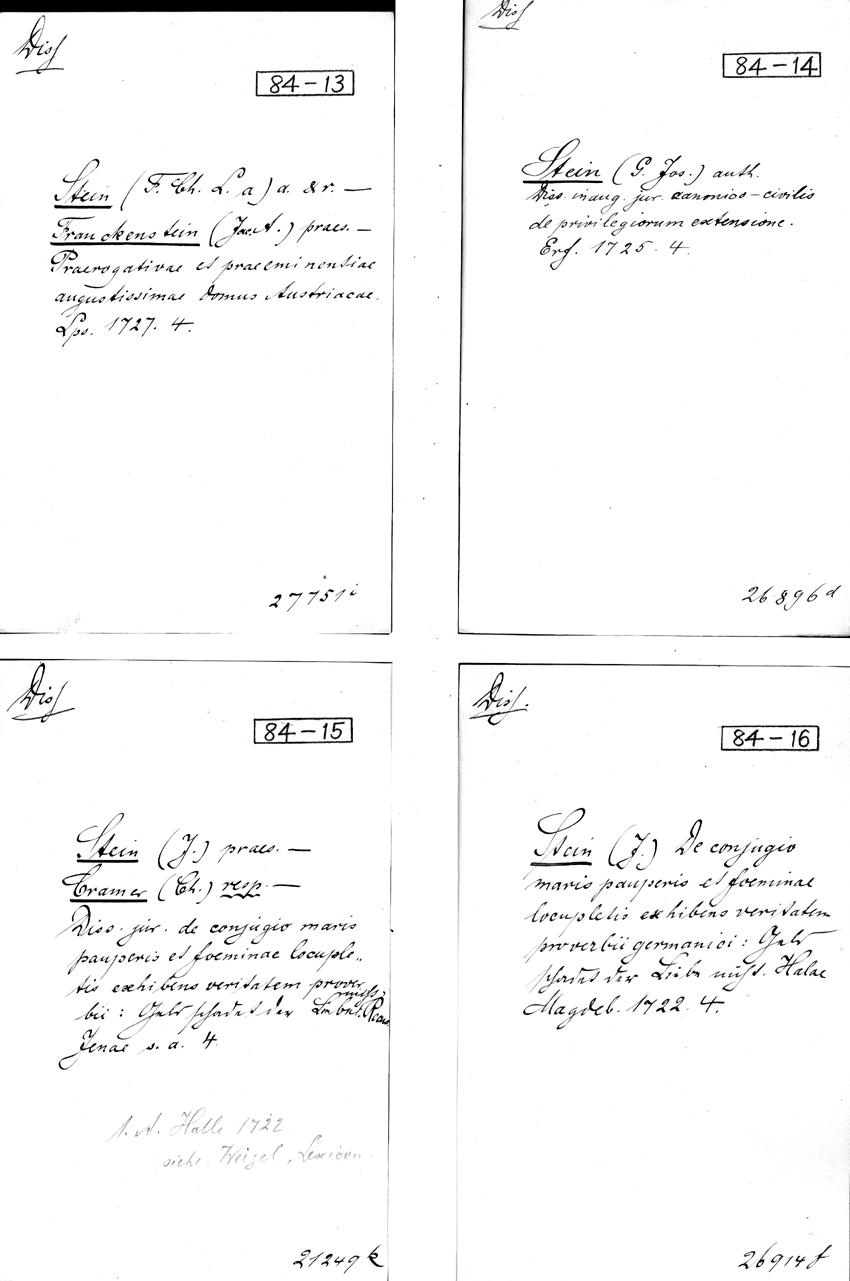 Diss
84-13
Stein (F. Ch. L. a) a. & r. —
Franckenstein (Jac. A.) praes. —
Praerogativae et praeeminentiae
augustissimae domus Austriacae.
Lps. 1727. 4.
27751 i
Diss
84-14
Stein (G. Jos.) auth.
Diss. inaug. jur. canonico-civilis
de privilegiorum extensione.
Erf. 1725. 4.
26896 d
Diss
84-15
Stein (J.) praes. —
Cramer (Ch.) resp. —
Diss. jur. de conjugio maris
pauperis et foeminae locuple-
tis exhibens veritatem prover-
bii: Geld schadet der Liebe nicht.
Jenae s. a. 4.
1. A. Halle 1722
siehe Weigel, Lexicon.
21249 k
Diss.
84-16
Stein (J.) De conjugio
maris pauperis et foeminae
locupletis exhibens veritatem
proverbii germanici: Geld
schadet der Liebe nicht. Halae
Magdeb. 1722. 4.
26914 f